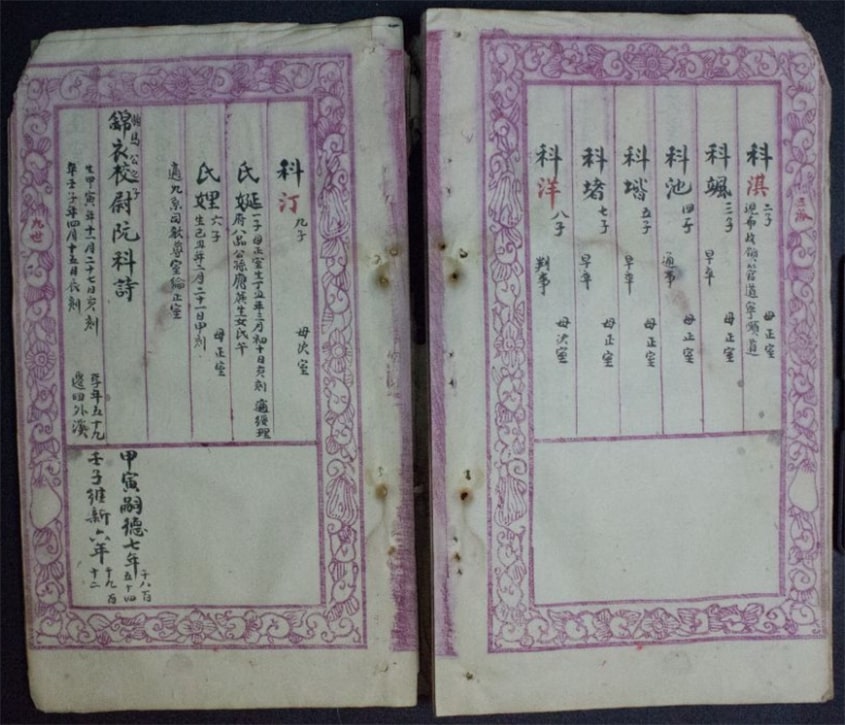 科淇 二子 母正室
科颯 三子 早卒 母正室
科池 四子 通事 母正室
科堦 五子 早卒 母正室
科堵 七子 早卒 母正室
科洋 八子 判事 母次室
科汀 九子 母次室
氏娫 一子母正室生丁丑年三月初十日亥刻 適經理
府八品公孫膺生女氏午
氏娌 六子 母正室
生己丑年二月二十一日甲刻
適九系司教導室綸正室
馬公之子
錦衣校尉阮科詩
生甲寅年十一月二十七日亥刻 享年五十九
卒壬子年四月十五日辰刻
甲寅嗣德七年 千八百五十四
壬子維新六年 千九百十二
九世